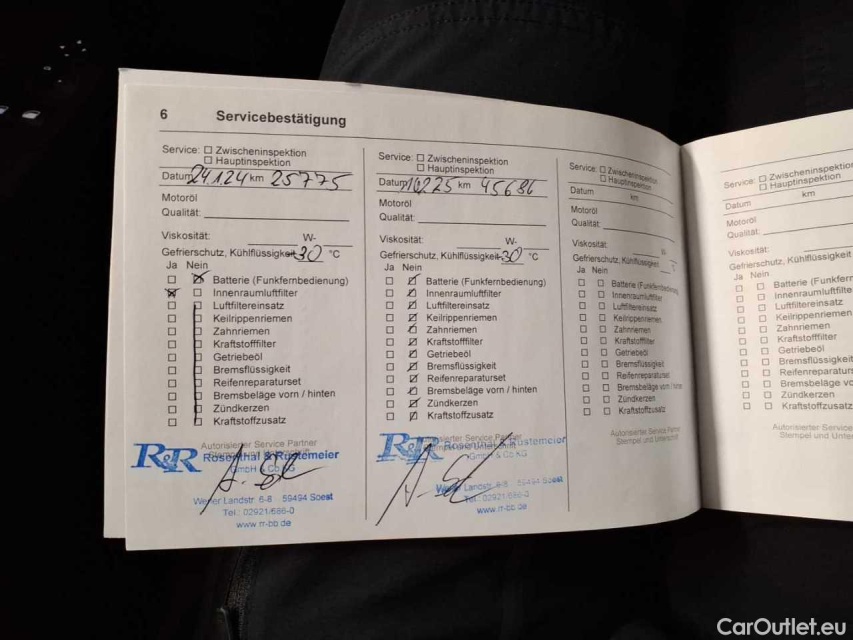 6 Servicebestätigung
Service: ☐ Zwischeninspektion
☐ Hauptinspektion
Datum 24.1.24 km 25775
Motoröl
Qualität:
Viskosität: W-
Gefrierschutz, Kühlflüssigkeit -30 °C
Ja Nein
Batterie (Funkfernbedienung)
Innenraumluftfilter
Luftfiltereinsatz
Keilrippenriemen
Zahnriemen
Kraftstofffilter
Getriebeöl
Bremsflüssigkeit
Reifenreparaturset
Bremsbeläge vorn / hinten
Zündkerzen
Kraftstoffzusatz
Autorisierter Service Partner
R&R Rosenthal & Rüstemeier
GmbH & Co KG
Werler Landstr. 6-8 59494 Soest
Tel.: 02921/686-0
www.rr-bb.de
Service: ☐ Zwischeninspektion
☐ Hauptinspektion
Datum km 45686
Motoröl
Qualität:
Viskosität: W-
Gefrierschutz, Kühlflüssigkeit -30 °C
Ja Nein
Batterie (Funkfernbedienung)
Innenraumluftfilter
Luftfiltereinsatz
Keilrippenriemen
Zahnriemen
Kraftstofffilter
Getriebeöl
Bremsflüssigkeit
Reifenreparaturset
Bremsbeläge vorn / hinten
Zündkerzen
Kraftstoffzusatz
Autorisierter Service Partner
R&R Rosenthal & Rüstemeier
GmbH & Co KG
Werler Landstr. 6-8 59494 Soest
Tel.: 02921/686-0
www.rr-bb.de
Service: ☐ Zwischeninspektion
☐ Hauptinspektion
Datum km
Motoröl
Qualität:
Viskosität: W-
Gefrierschutz, Kühlflüssigkeit °C
Ja Nein
Batterie (Funkfernbedienung)
Innenraumluftfilter
Luftfiltereinsatz
Keilrippenriemen
Zahnriemen
Kraftstofffilter
Getriebeöl
Bremsflüssigkeit
Reifenreparaturset
Bremsbeläge vorn / hinten
Zündkerzen
Kraftstoffzusatz
Autorisierter Service Partner
Stempel und Unterschrift
Service: ☐ Zwischeninspektion
☐ Hauptinspektion
Datum km
Motoröl
Qualität:
Viskosität:
Gefrierschutz, Kühlflüssigkeit
Ja Nein
Batterie (Funkfern
Innenraumluftfilte
Luftfiltereinsatz
Keilrippenriemen
Zahnriemen
Kraftstofffilter
Getriebeöl
Bremsflüssigkeit
Reifenreparatur
Bremsbeläge vo
Zündkerzen
Kraftstoffzusatz
Autorisierter Servic
Stempel und Unter
CarOutlet.eu